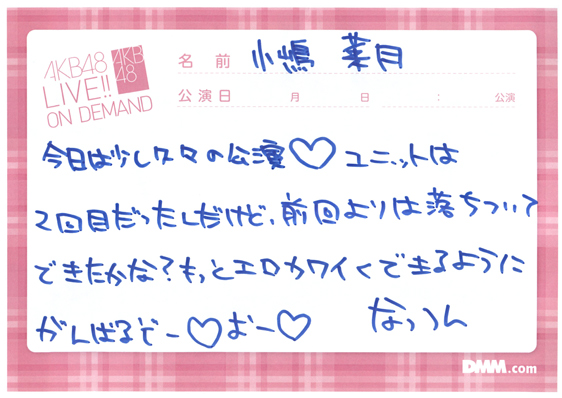 AKB48
LIVE!!
ON DEMAND
AKB
48
名前 小嶋 菜月
公演日 月 日 : 公演
今日は少し久々の公演♡ユニットは
2回目だったしだけど、前回よりは落ちついて
できたかな?もっとエロカワイくできるように
がんばるぞー♡おー♡ なっつん
DMM.com